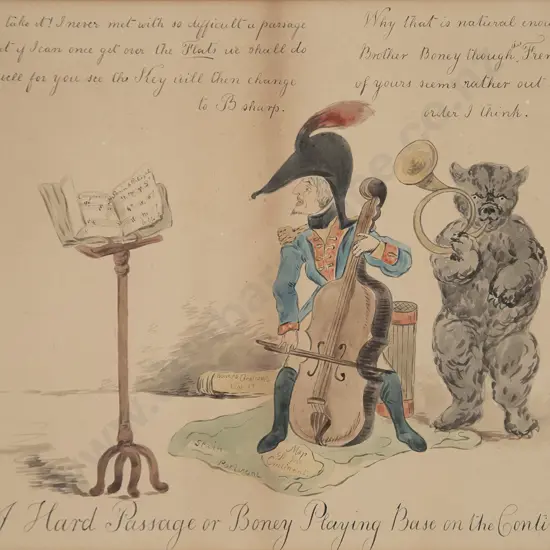 take it! I never met with so difficult a passage
if I can once get over the Flats we shall do
well for you see the Key will then change
to B sharp.
Why that is natural enou
Brother Boney though, Fren
of yours seems rather out
order I think.
Spain
Portugal
Map
of
Hard Passage or Boney Playing Base on the Conti